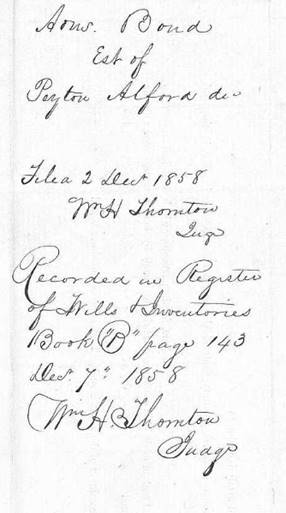 Admr. Bond
Est of
Peyton Alford dec
Filed 2 Decr 1858
Wm H Thornton
Judge
Recorded in Register
of Wills & Inventories
Book "D" page 143
Decr. 7th 1858
Wm H Thornton
Judge